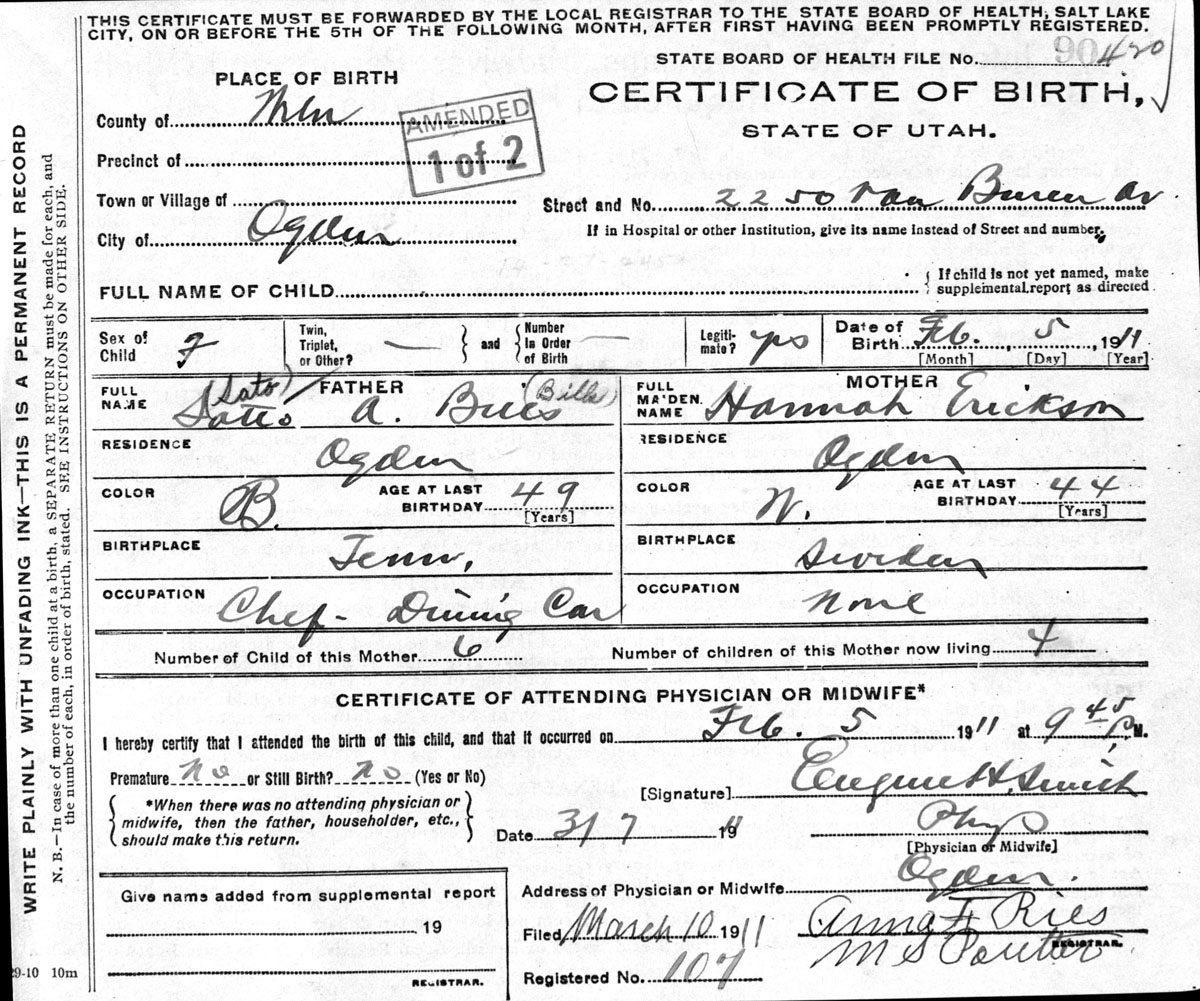 THIS CERTIFICATE MUST BE FORWARDED BY THE LOCAL REGISTRAR TO THE STATE BOARD OF HEALTH, SALT LAKE
CITY, ON OR BEFORE THE 5TH OF THE FOLLOWING MONTH, AFTER FIRST HAVING BEEN PROMPTLY REGISTERED.
STATE BOARD OF HEALTH FILE No. 420
PLACE OF BIRTH
CERTIFICATE OF BIRTH,
STATE OF UTAH.
County of
AMENDED
1 of 2
Precinct of
Town or Village of
Street and No. 2250 Van Buren Av
City of Ogden
If in Hospital or other Institution, give its name instead of Street and number.
FULL NAME OF CHILD
{ If child is not yet named, make
supplemental report as directed
Sex of Child F
Twin, Triplet, or Other? — } and { Number In Order of Birth —
Legitimate? yes
Date of Birth Feb. 5, 1911
[Month] [Day] [Year]
FATHER
FULL NAME (Sato) Sotto A. Bills (Bills)
MOTHER
FULL MAIDEN NAME Hannah Erickson
RESIDENCE Ogden
RESIDENCE Ogden
COLOR B. AGE AT LAST BIRTHDAY 49 [Years]
COLOR W. AGE AT LAST BIRTHDAY 44 [Years]
BIRTHPLACE Tenn.
BIRTHPLACE Sweden
OCCUPATION Chef - Dining Car
OCCUPATION None
Number of Child of this Mother 6 Number of children of this Mother now living 4
CERTIFICATE OF ATTENDING PHYSICIAN OR MIDWIFE*
I hereby certify that I attended the birth of this child, and that it occurred on Feb. 5 1911 at 9 45 P.M.
Premature No or Still Birth? No (Yes or No)
[Signature] Eugene H. Smith
{ *When there was no attending physician or
midwife, then the father, householder, etc.,
should make this return. }
Date 3/7 1911
Phys
[Physician or Midwife]
Address of Physician or Midwife Ogden.
Give name added from supplemental report
19
Filed March 10 1911 Anna F Ries
M S
REGISTRAR.
Registered No. 107
REGISTRAR.
29-10 10m
WRITE PLAINLY WITH UNFADING INK—THIS IS A PERMANENT RECORD
N. B.—In case of more than one child at a birth, a SEPARATE RETURN must be made for each, and
the number of each, in order of birth, stated. SEE INSTRUCTIONS ON OTHER SIDE.